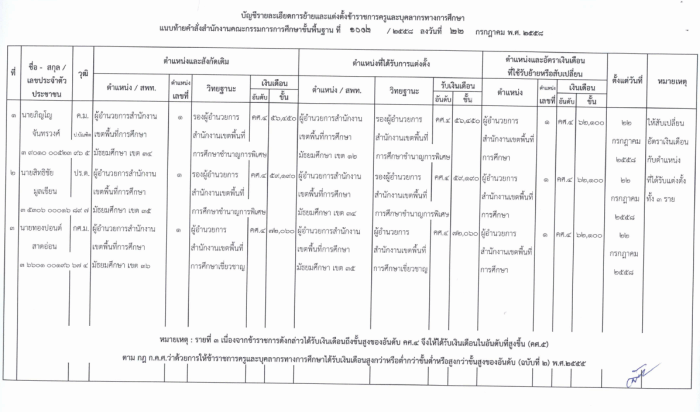 บัญชีรายละเอียดการย้ายและแต่งตั้งข้าราชการครูและบุคลากรทางการศึกษา
แนบท้ายคำสั่งสำนักงานคณะกรรมการการศึกษาขั้นพื้นฐาน ที่ ๑๐๑๒ / ๒๕๕๘ ลงวันที่ ๒๒ กรกฎาคม พ.ศ. ๒๕๕๘
ที่ ชื่อ - สกุล / เลขประจำตัวประชาชน วุฒิ ตำแหน่งและสังกัดเดิม ตำแหน่งที่ได้รับการแต่งตั้ง ตำแหน่งและอัตราเงินเดือนที่ใช้รับย้ายหรือสับเปลี่ยน ตั้งแต่วันที่ หมายเหตุ
ตำแหน่ง / สพท. ตำแหน่งเลขที่ วิทยฐานะ เงินเดือน ตำแหน่ง / สพท. วิทยฐานะ รับเงินเดือน ตำแหน่ง ตำแหน่งเลขที่ เงินเดือน
อันดับ ขั้น อันดับ ขั้น อันดับ ขั้น
๑ นายภิญโญ ค.ม. ผู้อำนวยการสำนักงาน ๑ รองผู้อำนวยการ คศ.๔ ๕๖,๔๕๐ ผู้อำนวยการสำนักงาน รองผู้อำนวยการ คศ.๔ ๕๖,๔๕๐ ผู้อำนวยการ ๑ คศ.๔ ๖๒,๑๐๐ ๒๒ ให้สับเปลี่ยน
จันทรวงศ์ เขตพื้นที่การศึกษา สำนักงานเขตพื้นที่ เขตพื้นที่การศึกษา สำนักงานเขตพื้นที่ สำนักงานเขตพื้นที่ กรกฎาคม อัตราเงินเดือน
มัธยมศึกษา เขต ๓๔ การศึกษาชำนาญการพิเศษ มัธยมศึกษา เขต ๑๒ การศึกษาชำนาญการพิเศษ การศึกษา ๒๕๕๘ กับตำแหน่ง
๒ นายสิทธิชัย ปร.ด. ผู้อำนวยการสำนักงาน ๑ รองผู้อำนวยการ คศ.๔ ๕๙,๑๙๐ ผู้อำนวยการสำนักงาน รองผู้อำนวยการ คศ.๔ ๕๙,๑๙๐ ผู้อำนวยการ ๑ คศ.๔ ๖๒,๑๐๐ ๒๒ ที่ได้รับแต่งตั้ง
มูลเขียน เขตพื้นที่การศึกษา สำนักงานเขตพื้นที่ เขตพื้นที่การศึกษา สำนักงานเขตพื้นที่ สำนักงานเขตพื้นที่ กรกฎาคม ทั้ง ๓ ราย
มัธยมศึกษา เขต ๓๕ การศึกษาชำนาญการพิเศษ มัธยมศึกษา เขต ๓๔ การศึกษาชำนาญการพิเศษ การศึกษา ๒๕๕๘
๓ นายทองปอนด์ กศ.ม. ผู้อำนวยการสำนักงาน ๑ ผู้อำนวยการ คศ.๔ ๗๒,๐๖๐ ผู้อำนวยการสำนักงาน ผู้อำนวยการ คศ.๔ ๗๒,๐๖๐ ผู้อำนวยการ ๑ คศ.๔ ๖๒,๑๐๐ ๒๒
สาดอ่อน เขตพื้นที่การศึกษา สำนักงานเขตพื้นที่ เขตพื้นที่การศึกษา สำนักงานเขตพื้นที่ สำนักงานเขตพื้นที่ กรกฎาคม
มัธยมศึกษา เขต ๑๖ การศึกษาเชี่ยวชาญ มัธยมศึกษา เขต ๓๕ การศึกษาเชี่ยวชาญ การศึกษา ๒๕๕๘
หมายเหตุ : รายที่ ๓ เนื่องจากข้าราชการดังกล่าวได้รับเงินเดือนถึงขั้นสูงของอันดับ คศ.๔ จึงให้ได้รับเงินเดือนในอันดับที่สูงขึ้น (คศ.๕)
ตาม กฎ ก.ค.ศ.ว่าด้วยการให้ข้าราชการครูและบุคลากรทางการศึกษาได้รับเงินเดือนสูงกว่าหรือต่ำกว่าขั้นต่ำหรือสูงกว่าขั้นสูงของอันดับ (ฉบับที่ ๒) พ.ศ.๒๕๕๕